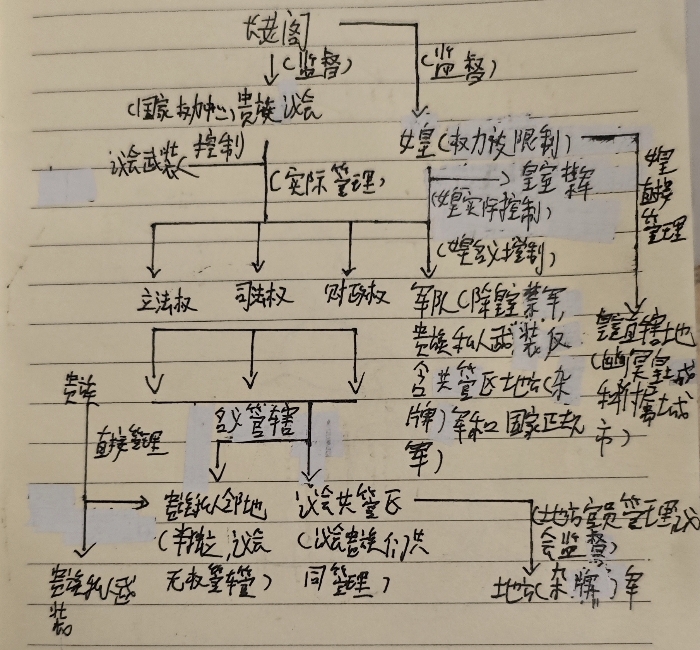 长老阁
(监督)
(监督)
(国家权力中心)贵族议会
女皇(权力被限制)
控制
议会武装
(实际管理)
皇室禁军
(女皇实际控制)
(女皇名义控制)
女皇
直接
管理
立法权
司法权
财政权
军队(除皇室禁军,
贵族私人武装及
含共管区地方(杂
牌)军和国家正规
军)
皇直辖地
城
市)
贵族
直接管理
名义管辖
贵族私人邻地
(半独立,议会
无权管辖)
议会共管区
(议会贵族们共
同管理)
(地方官员管理议
会监督)
地方(杂牌)军
贵族私人武
装